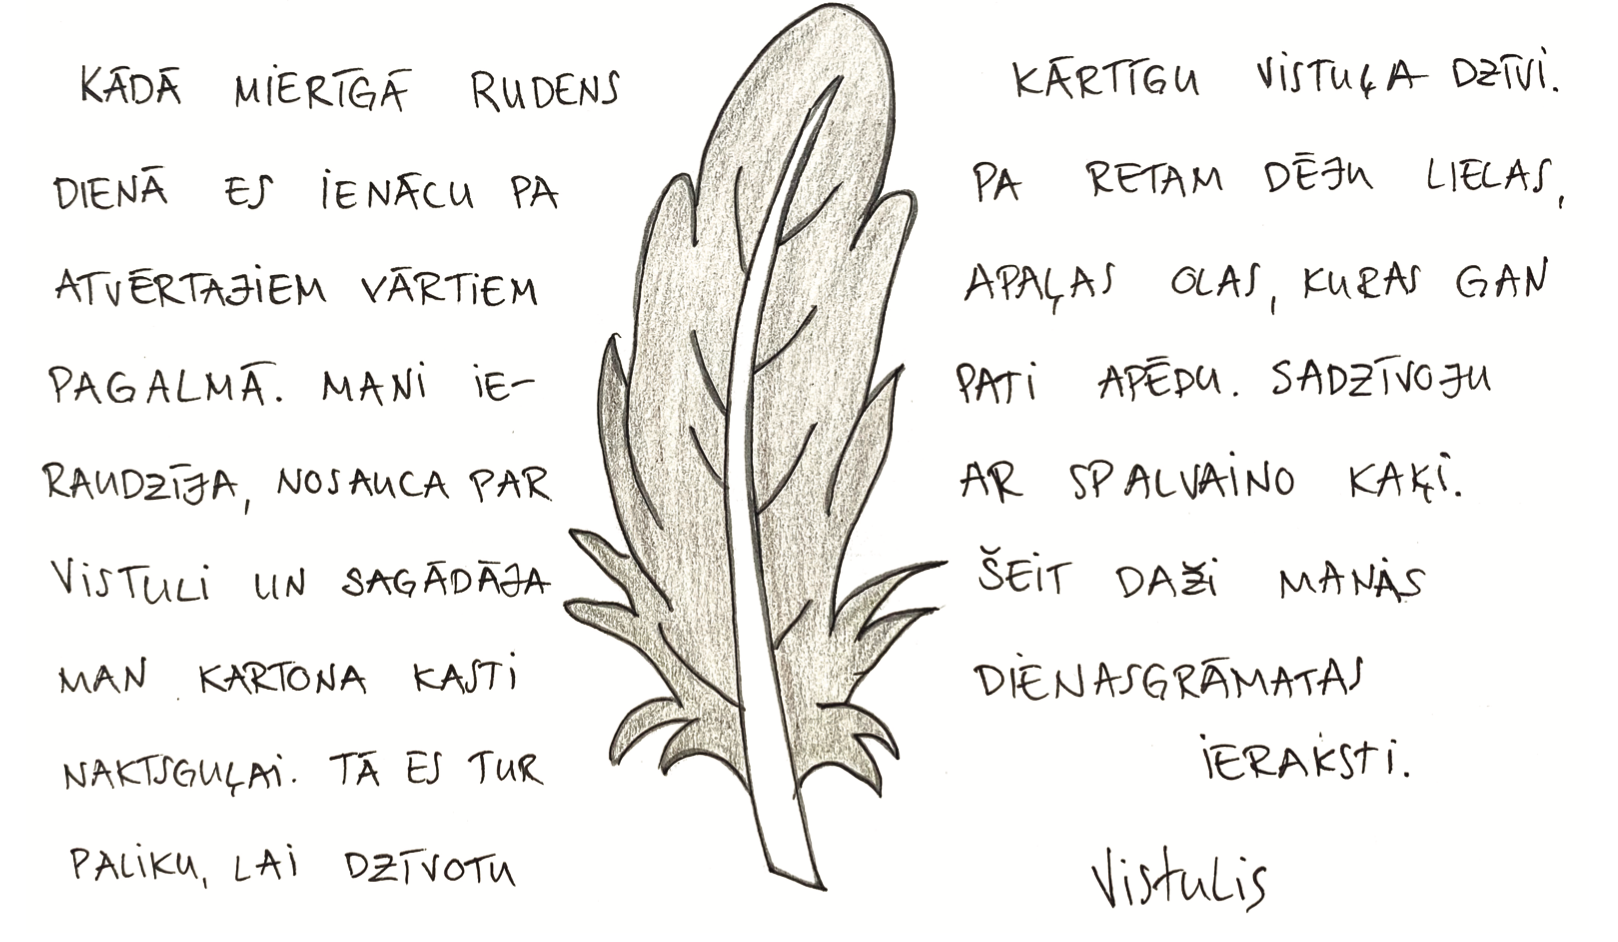 KĀDĀ MIERĪGĀ RUDENS
DIENĀ ES IENĀCU PA
ATVĒRTAJIEM VĀRTIEM
PAGALMĀ. MANI IE-
RAUDZĪJA, NOSAUCA PAR
VISTULI UN SAGĀDĀJA
MAN KARTONA KASTI
NAKTSGUĻAI. TĀ ES TUR
PALIKU, LAI DZĪVOTU
KĀRTĪGU VISTUĻA DZĪVI.
PA RETAM DĒJU LIELAS,
APAĻAS OLAS, KURAS GAN
PATI APĒDU. SADZĪVOJU
AR SPALVAINO KAĶI.
ŠEIT DAŽI MANAS
DIENASGRĀMATAS
IERAKSTI.
Vistulis